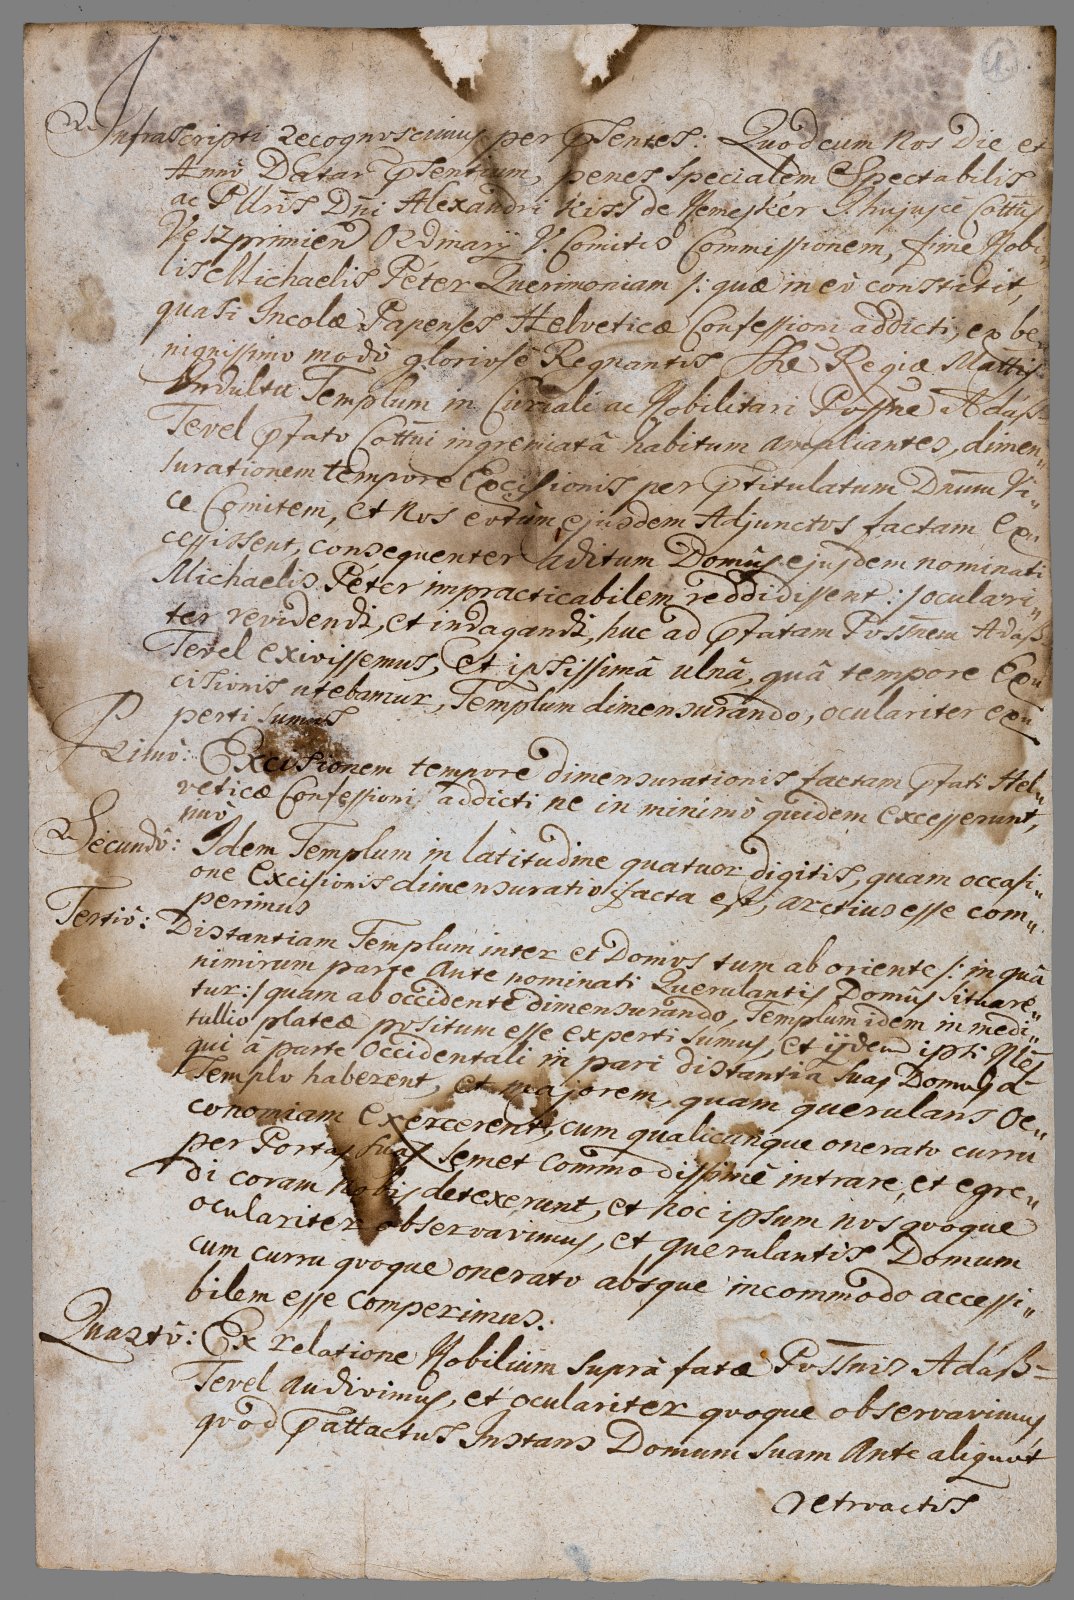 1.
Infrascripti recognoscimus per p̄sentes: Quod cum Nos Die et
Anno Datar p̄sentium, penes specialem Spectabilis
ac Pllris Dn̄i Alexandri Kiss de Nemeskér I. hujusce Cottūs
Veszprimien Ordinarij V. Comitis Commissionem, sine Nobi„
lis Michaelis Péter Querimoniam /: quæ in eo constitit,
quasi Incolæ Papenses Helveticæ Confessioni addicti, ex be„
nignissimo modo gloriose Regnantis Sæ Regiæ Mattis
Indultu Templum in Curiali ac Nobilitari Possne Adász
Tevel p̄fato Cottui ingremiatâ habitum ampliantes, dimen„
surationem tempore Excisionis per p̄titulatum Dn̄um Vi„
ce Comitem, et Nos eotum ejusdem Adjunctos factam ex„
cessissent, consequenter aditum Domûs ejusdem nominati
Michaelis Péter impracticabilem reddidissent :/ oculari„
ter revidendi, et indagandi, huc ad p̄fatam Possnem Adász
Tevel exivissemus, et ipsissimâ ulnâ, quâ tempore Ex„
cisionis utebamur, Templum dimensurando, oculariter ex„
perti sumus
Primò: Excisionem tempore dimensurationis factam p̄fati Hel„
veticæ Confessioni addicti ne in minimo quidem excesserunt,
imò
Secundò: Idem Templum in latitudine quatuor digitis, quam occasi„
one Excisionis dimensuratio facta est, arctius esse com„
perimus
Tertiò: Distantiam Templum inter et Domos tum ab oriente /: in quâ
nimirum parte Ante nominati Querulantis Domûs situare„
tur :/ quam ab occidente dimensurando, Templum idem in medi„
tullio plateæ positum esse experti sumus, et ijdem ipsi Nles
qui à parte Occidentali in pari distantia suas Domos à
Templo haberent, et majorem, quam querulans Oe„
conomiam exercerent, cum qualicunque onerato curru
per Portas suas semet Commodissimè intrare, et egre„
di coram Nobis detexerunt, et hoc ipsum nos quoque
oculariter observavimus, et querulantis Domum
cum curru quoque onerato absque incommodo accessi„
bilem esse comperimus.
Quartò: Ex relatione Nobilium suprà fatæ Possnis Adász
Tevel audivimus, et oculariter quoque observavimus,
quod p̄attactus Instans Domum suam Ante aliquot
retroactis